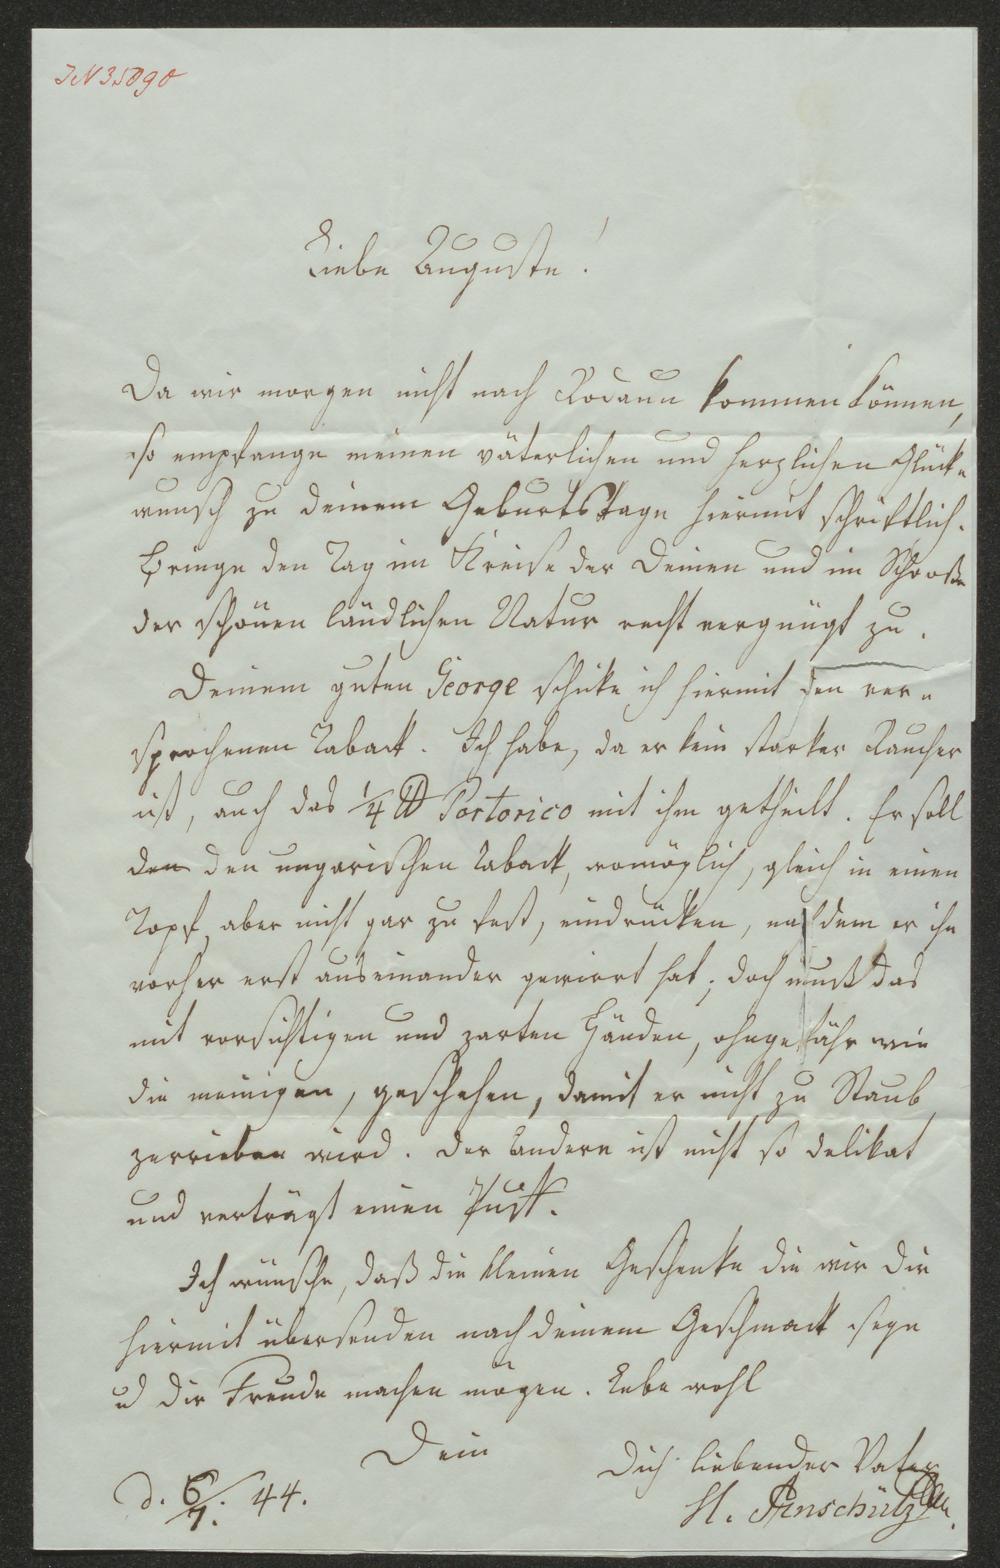 IN 35090
Liebe Auguste!
Da wir morgen nicht nach Rodaun kommen können,
so empfange meinen väterlichen und herzlichen Glück-
wunsch zu deinem Geburtstage hiermit schriftlich.
Bringe den Tag im Kreise der Deinen und im Schooße
der schönen ländlichen Natur recht vergnügt zu.
Deinem guten George schike ich hiermit den ver-
sprochenen Taback. Ich habe, da er kein starker Raucher
ist, auch das 1/4 ℔ Portorico mit ihm getheilt. Er soll
den den ungarischen Taback, womöglich, gleich in einen
Topf, aber nicht gar zu fest, eindrücken, nachdem er ihn
vorher erst auseinander gewirrt hat; doch muß das
mit vorsichtigen und zarten Händen, ohngefähr wie
die meinigen, geschehen, damit er nicht zu Staub
zerrieben wird. Der andere ist nicht so delikat
und verträgt einen Puff.
Ich wünsche, daß die kleinen Geschenke die wir Dir
hiermit übersenden nach deinem Geschmack seyn
ud Dir Freude machen mögen. Lebe wohl
Dein
Dich liebender Vater
d. 6/7. 44.
H. Anschütz